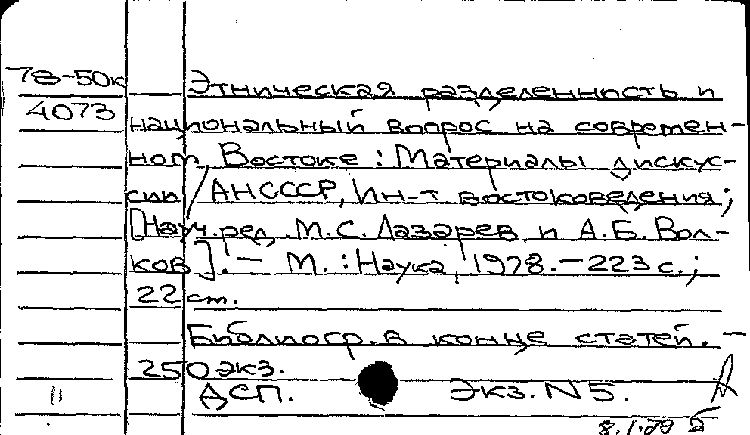 78-50к Этническая разделенность и
4073
национальный вопрос на современ-
ном Востоке : Материалы дискус-
сии / АН СССР, Ин-т востоковедения;
[Науч. ред. М.С. Лазарев и А.Б. Вол-
ков]. — М. : Наука, 1978. — 223 с.;
22 см.
Библиогр. в конце статей. —
250 экз.
ДСП. Экз. N 5.
11
8.1.79